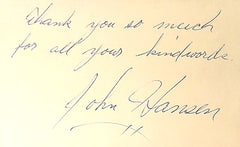 Thank you so much
for all your kindwords.
John Hansen